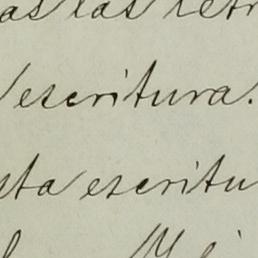 as las letr
escritura.
sta escritu